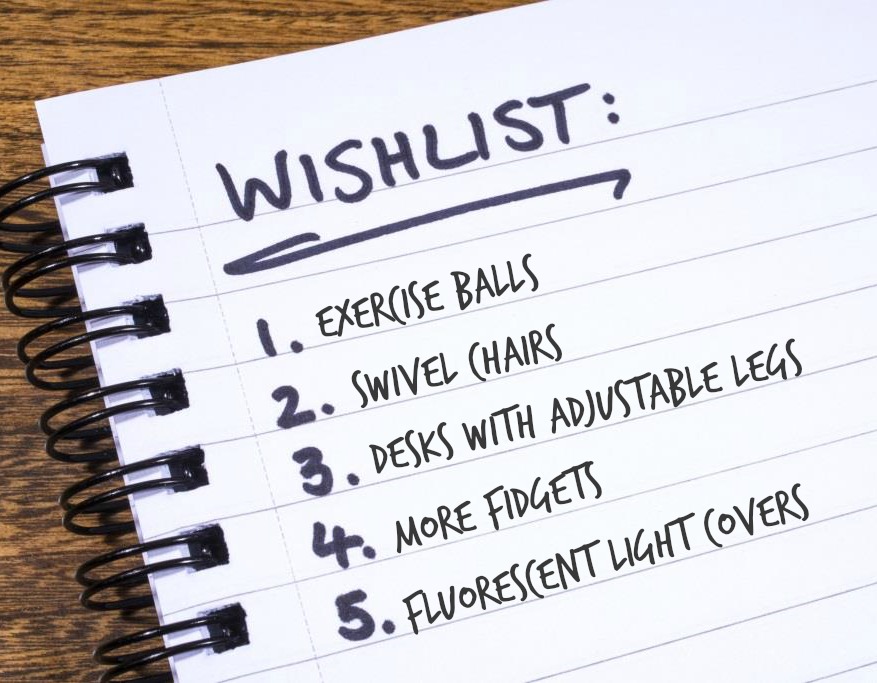 WISHLIST:
1. EXERCISE BALLS
2. SWIVEL CHAIRS
3. DESKS WITH ADJUSTABLE LEGS
4. MORE FIDGETS
5. FLUORESCENT LIGHT COVERS